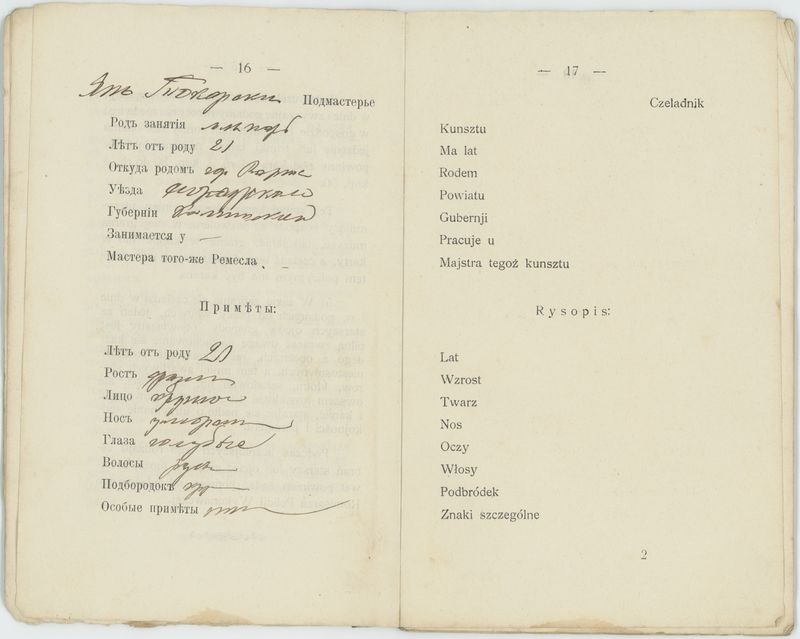 — 16 —
Янъ Токарски Подмастерье
Родъ занятія
Лѣтъ отъ роду 21
Откуда родомъ гор Варта
Уѣзда
Губерніи
Занимается у —
Мастера того-же Ремесла. —
Примѣты:
Лѣтъ отъ роду 21
Ростъ средній
Лицо
Носъ умѣрен
Глаза голубые
Волосы русы
Подбородокъ
Особые примѣты
— 17 —
Czeladnik
Kunsztu
Ma lat
Rodem
Powiatu
Gubernji
Pracuje u
Majstra tegoż kunsztu
Rysopis:
Lat
Wzrost
Twarz
Nos
Oczy
Włosy
Podbródek
Znaki szczególne
2